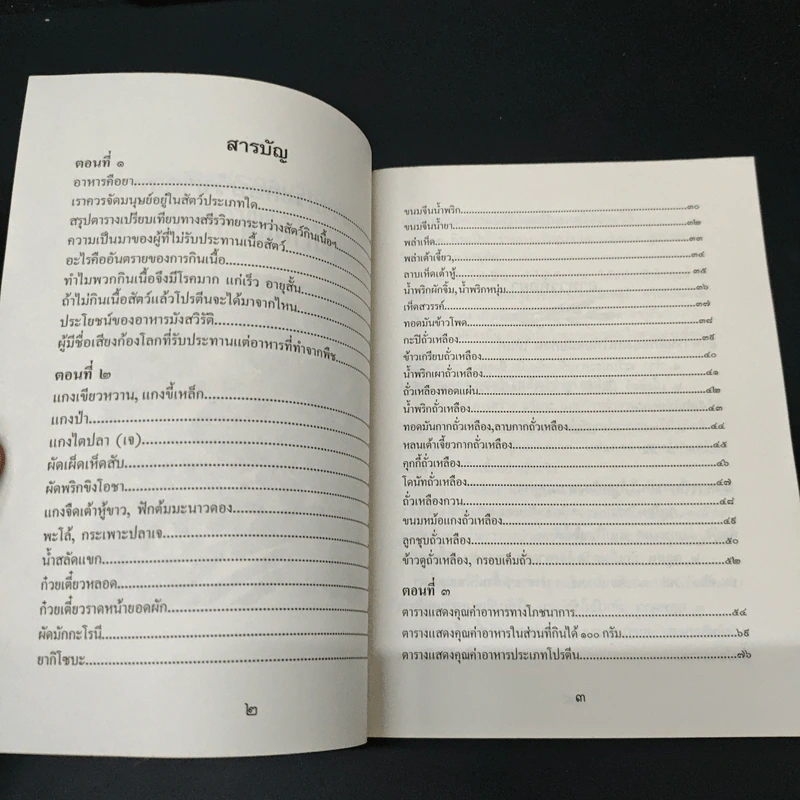 สารบัญ
ตอนที่ ๑
อาหารคือยา
เราควรจัดมนุษย์อยู่ในสัตว์ประเภทใด
สรุปตารางเปรียบเทียบทางสรีรวิทยาระหว่างสัตว์กินเนื้อฯ
ความเป็นมาของผู้ที่ไม่รับประทานเนื้อสัตว์
อะไรคืออันตรายของการกินเนื้อ
ทำไมพวกกินเนื้อจึงมีโรคมาก แก่เร็ว อายุสั้น
ถ้าไม่กินเนื้อสัตว์แล้วโปรตีนจะได้มาจากไหน
ประโยชน์ของอาหารมังสวิรัติ
ผู้มีชื่อเสียงก้องโลกที่รับประทานแต่อาหารที่ทำจากพืช
ตอนที่ ๒
แกงเขียวหวาน, แกงขี้เหล็ก
แกงป่า
แกงไตปลา (เจ)
ผัดเผ็ดเห็ดสับ
ผัดพริกขิงโอชา
แกงจืดเต้าหู้ขาว, ฟักต้มมะนาวดอง
พะโล้, กระเพาะปลาเจ
น้ำสลัดแขก
ก๋วยเตี๋ยวหลอด
ก๋วยเตี๋ยวราดหน้ายอดผัก
ผัดมักกะโรนี
ยากิโซบะ
๒
ขนมจีนน้ำพริก ๓๐
ขนมจีนน้ำยา ๓๒
พล่าเห็ด ๓๓
พล่าเต้าเจี้ยว ๓๔
ลาบเห็ดเต้าหู้ ๓๕
น้ำพริกผักจิ้ม, น้ำพริกหนุ่ม ๓๖
เห็ดสวรรค์ ๓๗
ทอดมันข้าวโพด ๓๘
กะปิถั่วเหลือง ๓๙
ข้าวเกรียบถั่วเหลือง ๔๐
น้ำพริกเผาถั่วเหลือง ๔๑
ถั่วเหลืองทอดแผ่น ๔๒
น้ำพริกถั่วเหลือง ๔๓
ทอดมันกากถั่วเหลือง,ลาบกากถั่วเหลือง ๔๔
หลนเต้าเจี้ยวกากถั่วเหลือง ๔๕
คุกกี้ถั่วเหลือง ๔๖
โดนัทถั่วเหลือง ๔๗
ถั่วเหลืองกวน ๔๘
ขนมหม้อแกงถั่วเหลือง ๔๙
ลูกชุบถั่วเหลือง ๕๐
ข้าวตูถั่วเหลือง, กรอบเค็มถั่ว ๕๒
ตอนที่ ๓
ตารางแสดงคุณค่าอาหารทางโภชนาการ ๕๔
ตารางแสดงคุณค่าอาหารในส่วนที่กินได้ ๑๐๐ กรัม ๖๙
ตารางแสดงคุณค่าอาหารประเภทโปรตีน ๗๖
๓